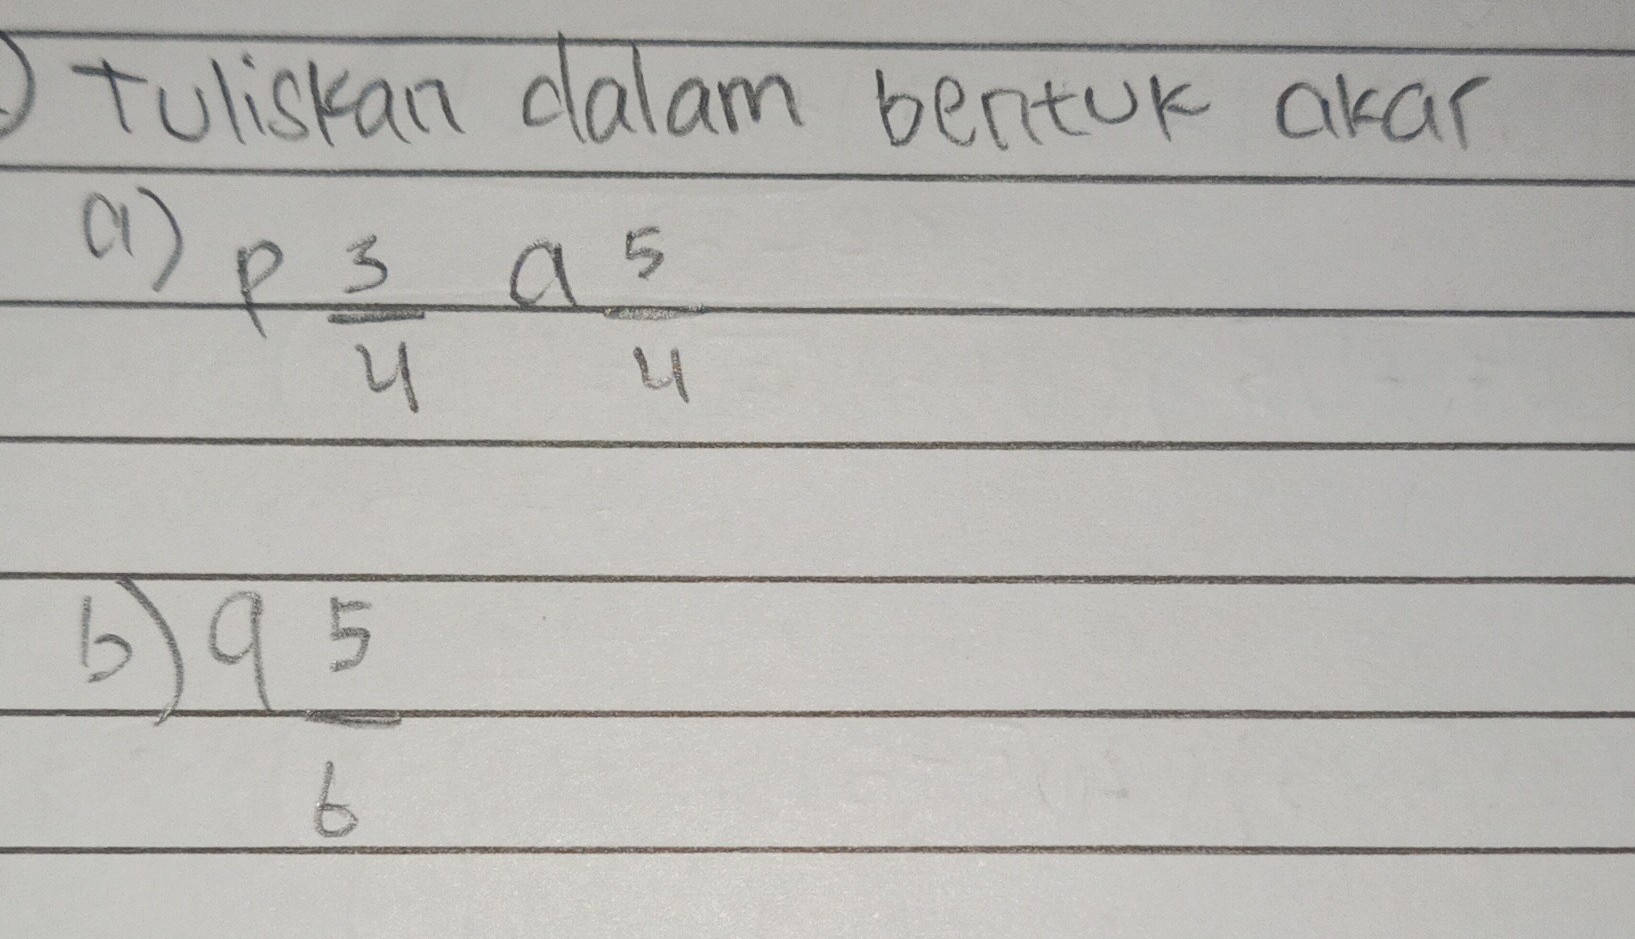 ) Tuliskan dalam bentuk akar
a) p 3/4 a 5/4
b) q 5/6